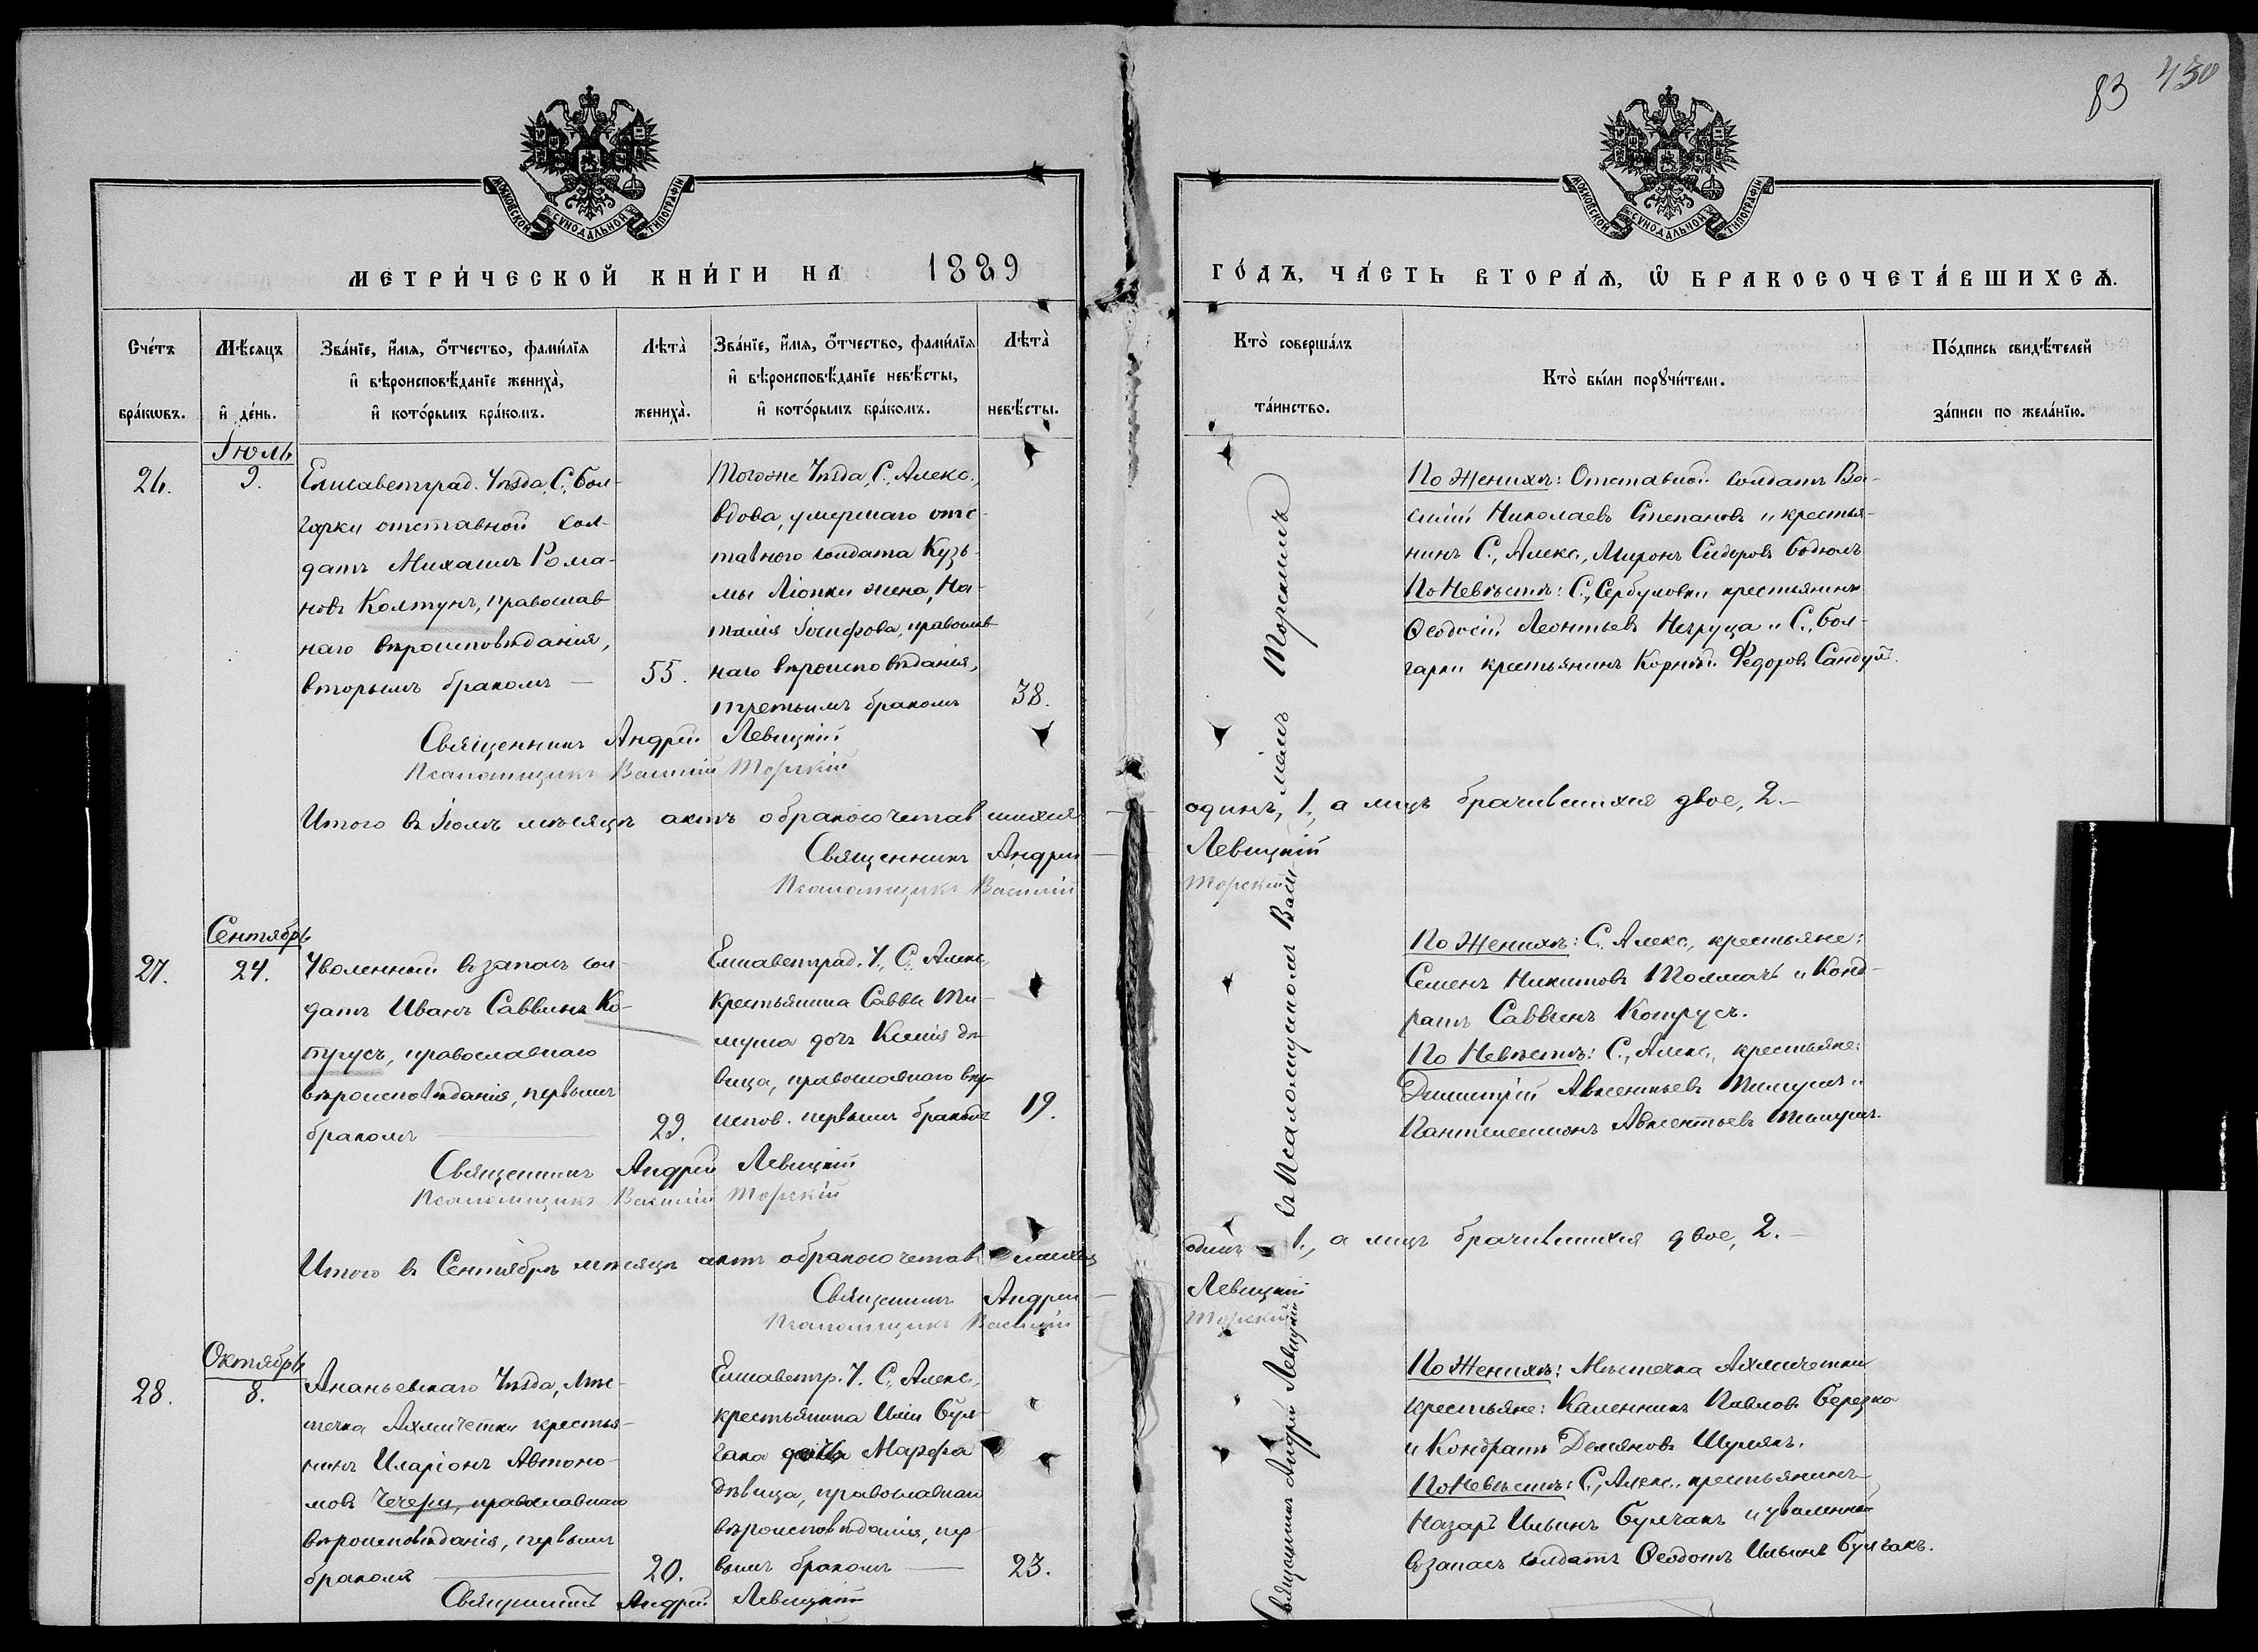 83 430
МОСКОВСКОЙ СѴНОДАЛЬНОЙ ТИПОГРАФІИ
МОСКОВСКОЙ СѴНОДАЛЬНОЙ ТИПОГРАФІИ
МЕТРИ́ЧЕСКОЙ КНИ́ГИ НА 1889
ГО́ДЪ, ЧА́СТЬ ВТОРА́Ѧ, Ѽ БРАКОСОЧЕТА́ВШИХСѦ.
Счётъ
бра́кѡвъ.
Мѣ́сяцъ
и҆ де́нь.
Зва́нїе, и҆́мѧ, ѻ҆́тчество, фами́лїѧ
и҆ вѣроисповѣ́данїе жениха̀,
и҆ кото́рымъ бра́комъ.
Лѣта̀
жениха̀.
Зва́нїе, и҆́мѧ, ѻ҆́тчество, фами́лїѧ
и҆ вѣроисповѣ́данїе невѣ́сты,
и҆ кото́рымъ бра́комъ.
Лѣта̀
невѣ́сты.
Кто̀ соверша́лъ
та́инство.
Кто̀ бы́ли порꙋчи́тели.
По́дпись свидѣ́телей
за́писи по жела́нїю.
Іюль
26.
9.
Елисаветград. Уѣзда, С. Бол-
гарки отставной сол-
датъ Михаилъ Рома-
новъ Колтунъ, православ
наго вѣроисповѣданія,
вторымъ бракомъ —
55.
Тогоже Уѣзда, С., Алекс.,
вдова, умершаго отс-
тавного солдата Кузь-
мы Ліопки жена, На-
талія Іосифова, православ
наго вѣроисповѣданія,
третьимъ бракомъ
38.
По Женихѣ: Отставной солдатъ Ва-
силій Николаевъ Степановъ и крестья-
нинъ С., Алекс., Миронъ Сидоровъ Бодюлъ
По Невѣстѣ: С., Сербуловки крестьянинъ
Ѳеодосій Леонтьевъ Негруца и С., Бол-
гарки крестьянинъ Корнѣй Федоровъ Сандул.
Священникъ Андрей Левицкій
Псаломщикъ Василій Торскій
Итого въ Іюлѣ мѣсяцѣ актъ о бракосочетавшихся — одинъ, 1., а лицъ брачившихся двое, 2.—
Священникъ Андрей — Левицкій
Псаломщикъ Василій Торскій
Сентябрь
27.
24.
Уволенный въ запасъ сол-
датъ Иванъ Саввинъ Ко-
трусъ, православнаго
вѣроисповѣданія, первымъ
бракомъ —
29.
Елисаветград. У., С., Алекс,
крестьянина Саввы Ти-
муша дочь Ксенія дѣ-
вица, православнаго вѣро-
испов. первымъ бракомъ
19.
По Женихѣ: С. Алекс., крестьяне:
Семенъ Никитовъ Толмачъ и Конд-
ратъ Саввинъ Котрусъ.
По Невѣстѣ: С., Алекс., крестьяне:
Димитрій Авксентьевъ Тимушъ и
Пантелеимонъ Авксентьевъ Тимушъ.
Священникъ Андрей Левицкій
Псаломщикъ Василій Торскій
Итого въ Сентябрѣ мѣсяцѣ актъ о бракосочетавшихся одинъ 1., а лицъ брачившихся двое, 2.—
Священникъ Андрей — Левицкій
Псаломщикъ Василій Торскій
Октябрь
28.
8.
Ананьевскаго Уѣзда, мѣс-
течка Ахмичетки крестья-
нинъ Иларіонъ Автоно-
мовъ Чечери, православнаго
вѣроисповѣданія, первымъ
бракомъ —
20.
Елисаветгр. У. С., Алекс.,
крестьянина Иліи Бул-
гака дочь Марфа
дѣвица, православнаго
вѣроисповѣданія, пер-
вымъ бракомъ —
23.
По Женихѣ: Мѣстечка Ахмичетки
крестьяне: Каленникъ Павловъ Березка
и Кондратъ Демяновъ Шулякъ.
По Невѣстѣ: С., Алекс., крестьянинъ
Назаръ Ильинъ Булгакъ и уволенный
въ запасъ солдатъ Ѳеодотъ Ильинъ Булгакъ.
Священникъ Андрей Левицкій
Священникъ Андрей Левицкій съ Псаломщикомъ Василіемъ Торскимъ